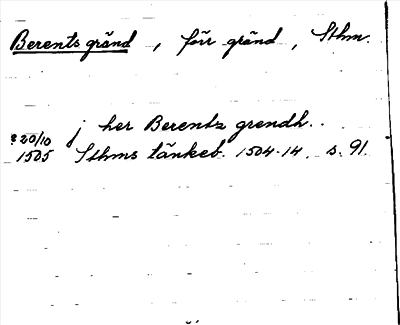 Berents gränd, förr gränd, Sthm.
j her Berentz grendh..
? 20/10 1505 Sthms tänkeb. 1504-14, s. 91.